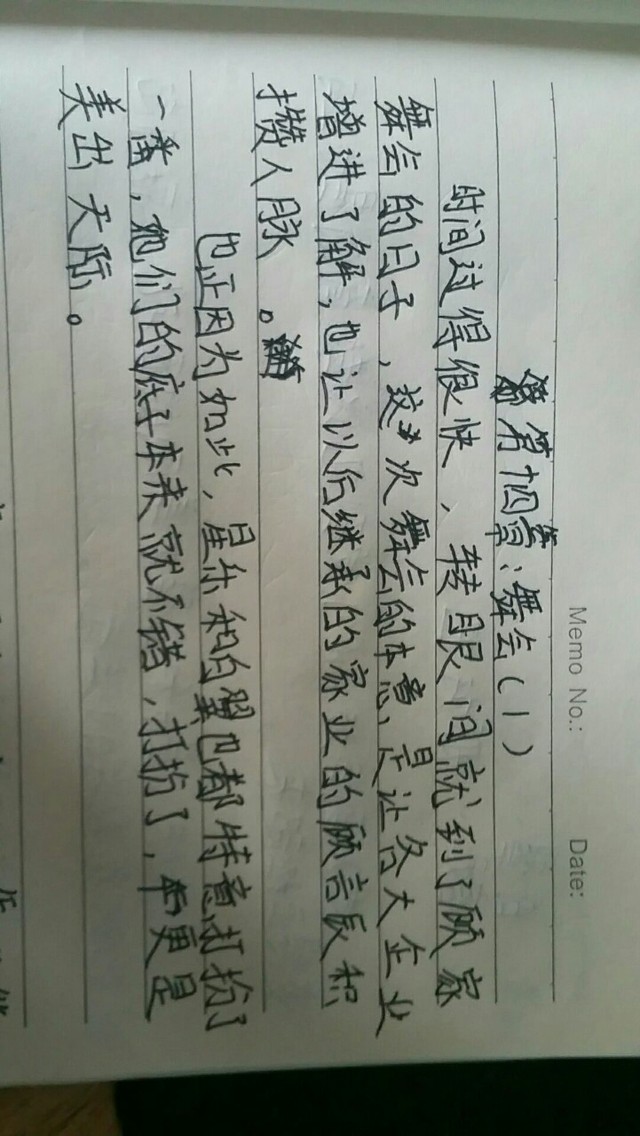 Memo No.: Date:
第十四章：舞会（1）
时间过得很快、转眼间就到了顾家
舞会的日子，这次舞会的本意是让各大企业
增进了解，也让以后继承的家业的顾言辰积
攒人脉。
也正因为如此，星乐和白翼也都特意打扮了
一番，她们的底子本来就不错，打扮了，更是
美出天际。